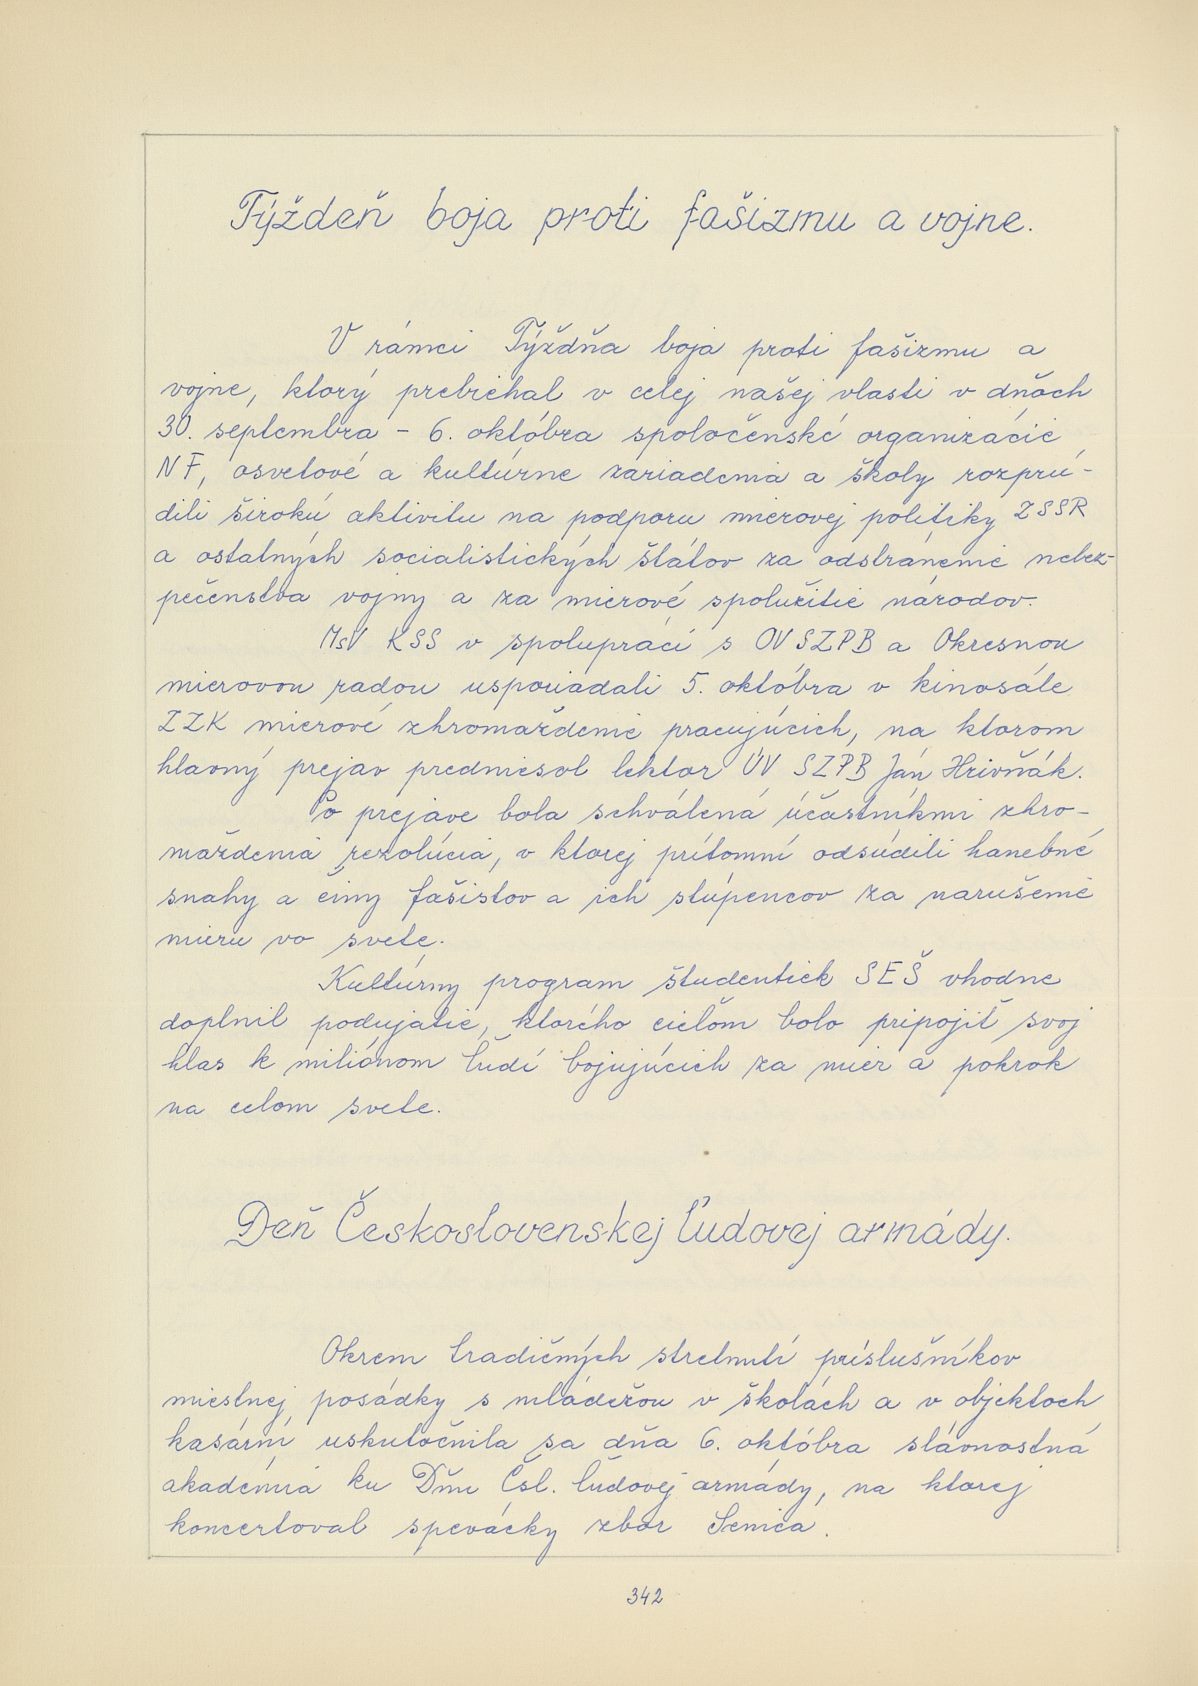 Týždeň boja proti fašizmu a vojne.
V rámci Týždňa boja proti fašizmu a
vojne, ktorý prebiehal v celej našej vlasti v dňoch
30. septembra - 6. októbra spoločenské organizácie
NF, osvetové a kultúrne zariadenia a školy rozprú-
dili širokú aktivitu na podporu mierovej politiky ZSSR
a ostatných socialistických štátov za odstránenie nebez-
pečenstva vojny a za mierové spolužitie národov.
MsV KSS v spolupráci s OV SZPB a Okresnou
mierovou radou usporiadali 5. októbra v kinosále
ZZK mierové zhromaždenie pracujúcich, na ktorom
hlavný prejav predniesol lektor ÚV SZPB Ján Hrivňák.
Po prejave bola schválená účastníkmi zhro-
maždenia rezolúcia, v ktorej prítomní odsúdili hanebné
snahy a činy fašistov a ich stúpencov za narušenie
mieru vo svete.
Kultúrny program študentiek SEŠ vhodne
doplnil podujatie, ktorého cieľom bolo pripojiť svoj
hlas k miliónom ľudí bojujúcich za mier a pokrok
na celom svete.
Deň Československej ľudovej armády.
Okrem tradičných stretnutí príslušníkov
miestnej posádky s mládežou v školách a v objektoch
kasární uskutočnila sa dňa 6. októbra slávnostná
akadémia ku Dňu Čsl. ľudovej armády, na ktorej
koncertoval spevácky zbor Senica.
342